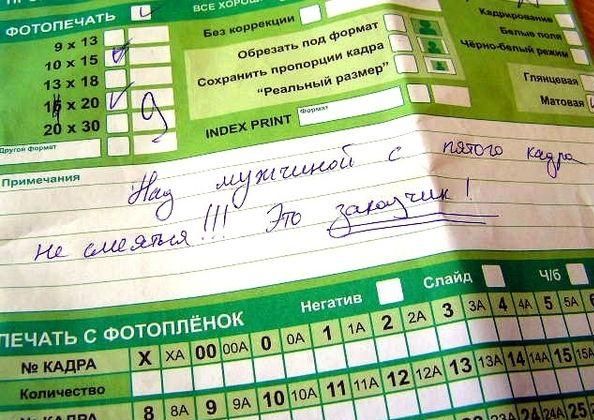 ФОТОПЕЧАТЬ
9 x 13
10 x 15
13 x 18
20
20 x 30
9
Другой формат
ВСЕ ХОРОШ
Без коррекции
Обрезать под формат
Сохранить пропорции кадра
"Реальный размер"
INDEX PRINT
Формат
Кадрирование
Белые поля
Чёрно-белый режим
Глянцевая
Матовая
Примечания
Над мужчиной с пятого кадра
не смеяться!!! Это заказчик!
Негатив
Слайд
Ч/б
ПЕЧАТЬ С ФОТОПЛЁНОК
№ КАДРА X XA 00 00A 0 0A 1 1A 2 2A 3 3A 4 4A 5 5A 6
Количество
№ КАДРА 8 8A 9 9A 10 10A 11 11A 12 12A 13 13A 14 14A 15 15A